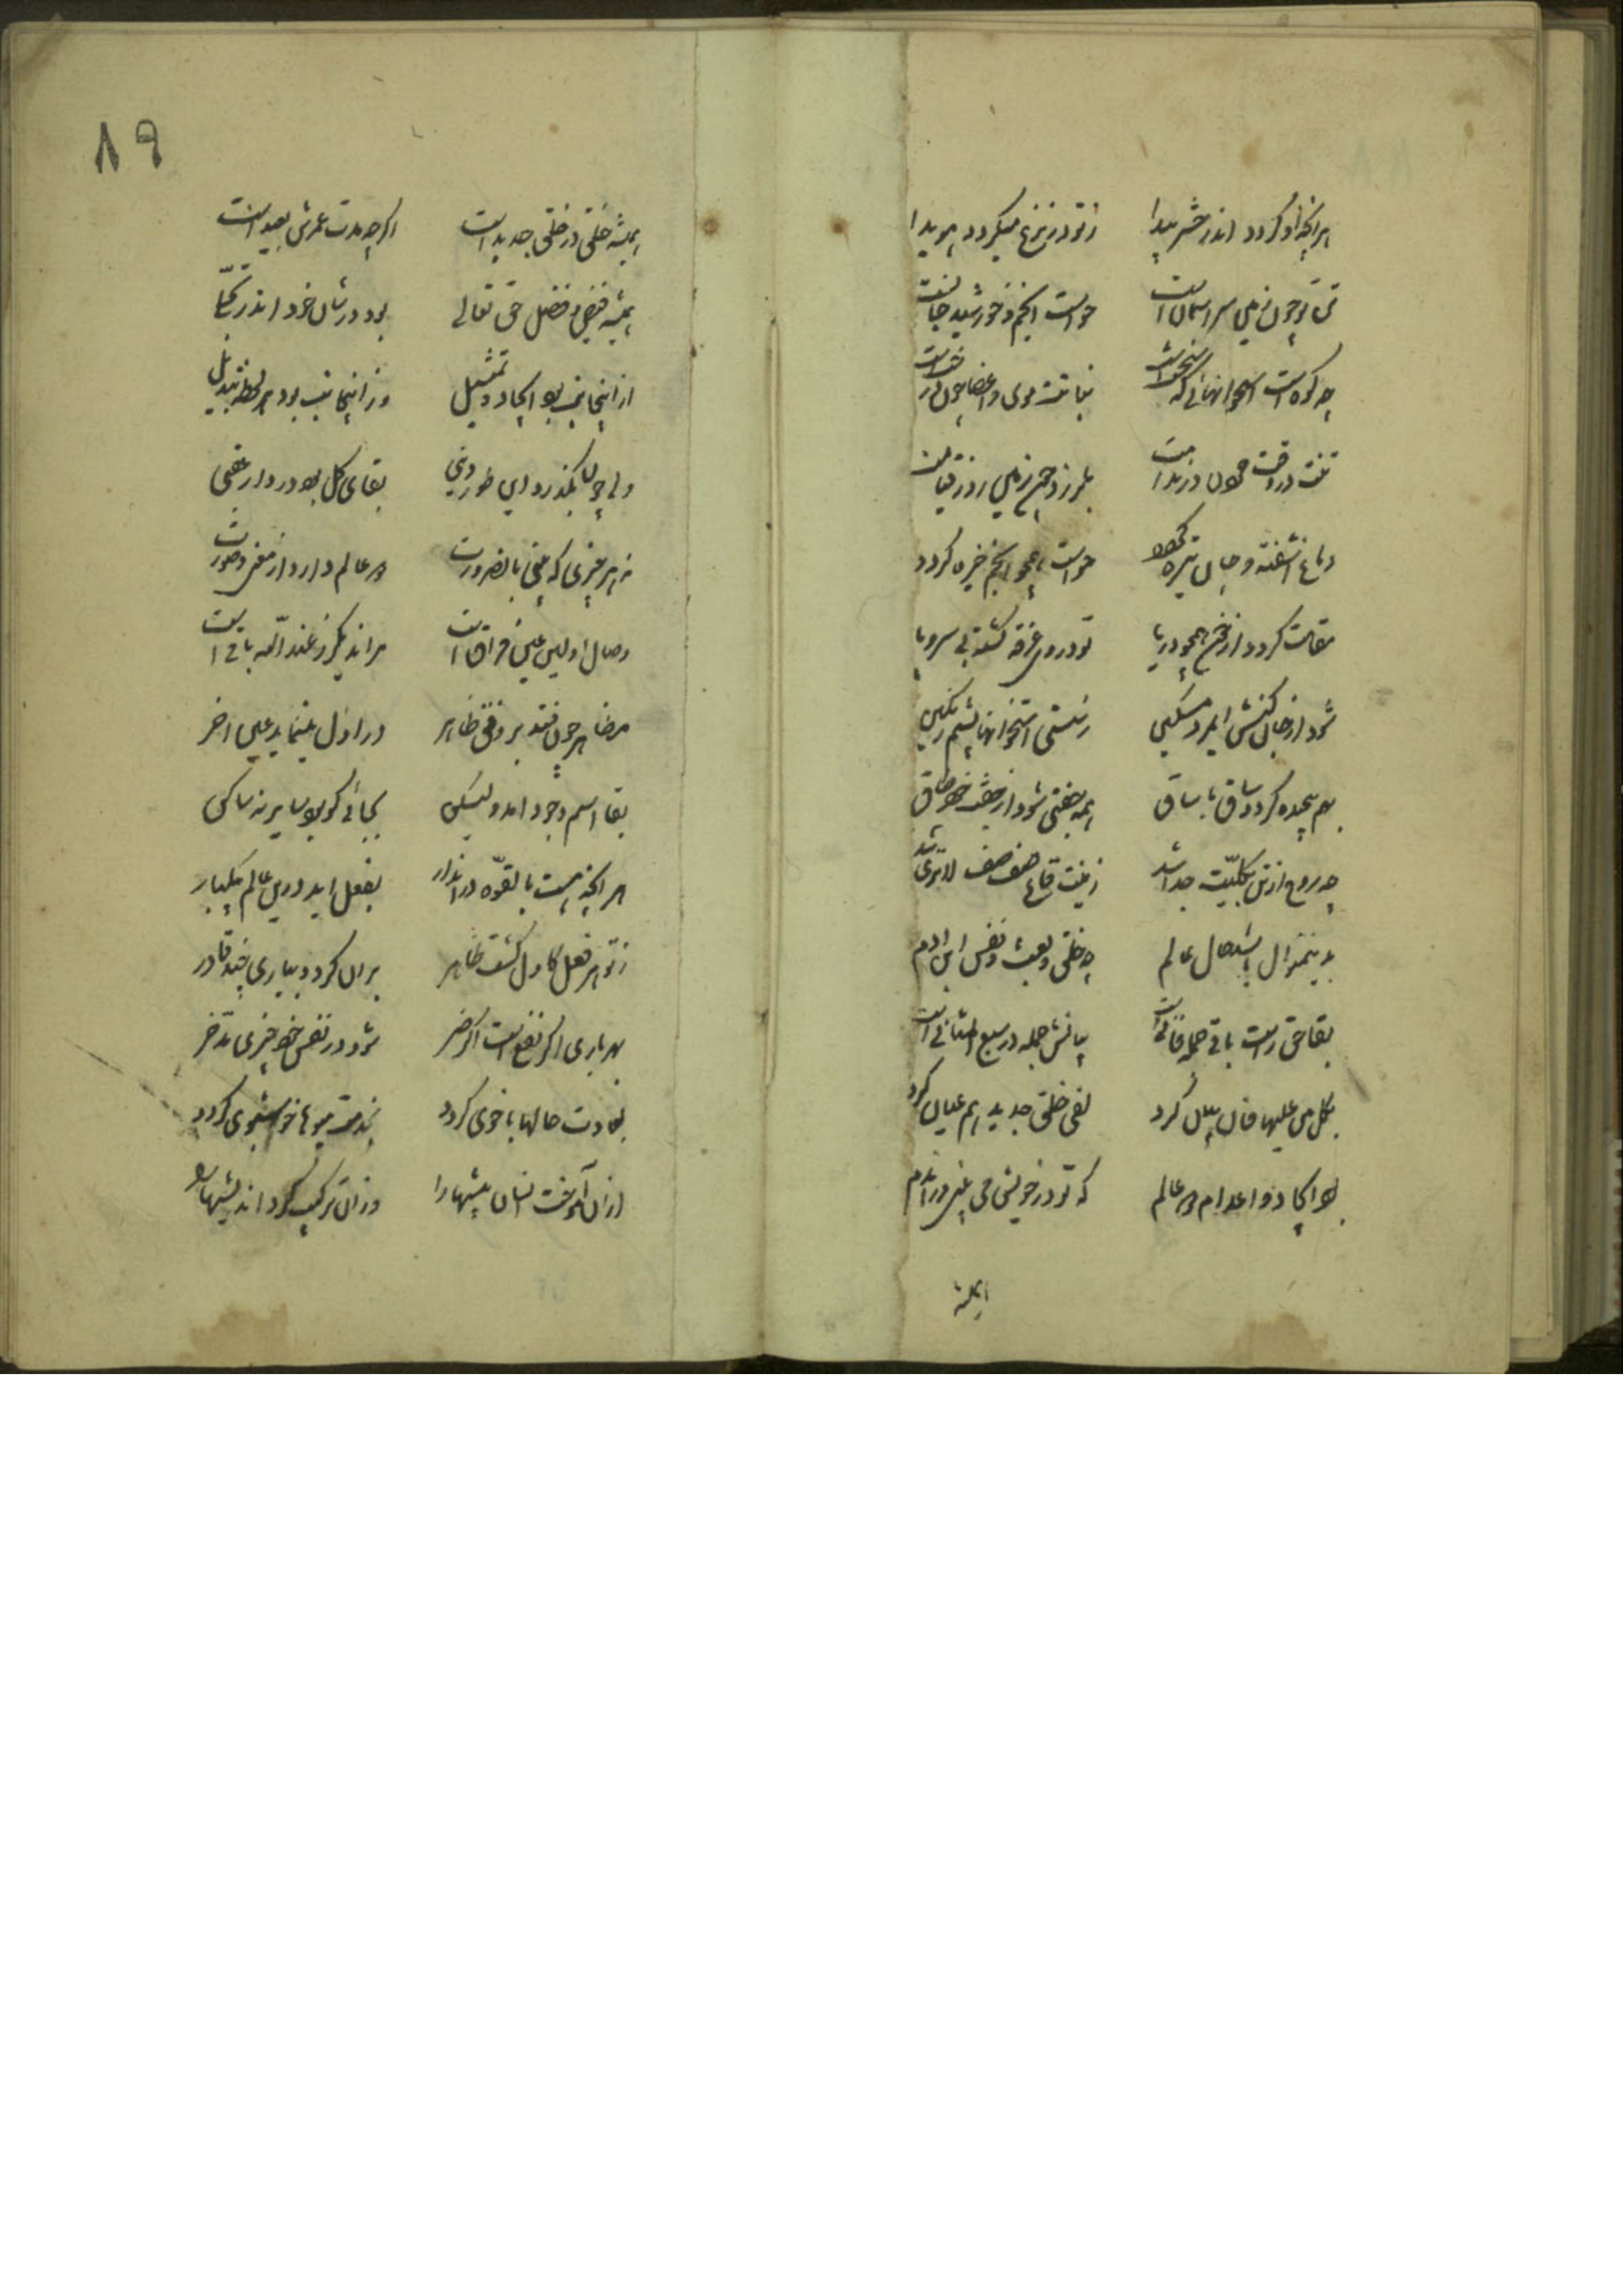 هرآنچه او گردد اندر حشر پیدا ز تو در نزع میگردد هویدا
تن تو چون زمین سر آسمان است حواست انجم و خورشید جانست
چو کوه است استخوانهائی که سختست نباتت موی و اعضا چون درختست
تنت در وقت مردن از ندامت بلرزد چون زمین روز قیامت
دماغ آشفته و جان تیره گردد حواست همچو انجم خیره گردد
مسامت گردد از خوی همچو دریا تو در وی غرقه گشته بی سر و پا
شود از جان کنش ای مرد مسکین ز سستی استخوانها پشم رنگین
بهم پیچیده گردد ساق با ساق همه جفتی شود از جفت خود طاق
چو روح از تن بکلیت جدا شد زمینت قاع صفصف لا تری شد
بدینمنوال باشد حال عالم چو خلق و بعث و نفس ابن ادم
بقا حق راست باقی جمله فانیست بیانش جمله در سبع المثانی است
بکل من علیها فان بیان کرد لفی خلق جدید هم عیان کرد
بود ایجاد و اعدام دو عالم که تو در خویش می بینی در اندم
همیشه
۸۹
همیشه خلق در خلق جدید است اگرچه مدت عمرش بعید است
همیشه فیض و فضل حق تعالی بود در شان خود اندر تجلا
از اینجانب بود ایجاد و تمثیل وز اینجانب بود هر لحظه تبدیل
ولی چون بگذرد این طور دنیی بقای کل بود در دار عقبی
که هر چیزی که بینی بالضرورت دو عالم دارد از معنی و صورت
وصال اولین عین فراق است مر ان دیگر ز عند الله باق است
مظاهر چون فتد بر وفق ظاهر در اول مینماید عین اخر
بقا اسم وجود امد ولیکن بجائی کو بود سایر نه ساکن
هر آنچه هست بالقوه در اندار بفعل اید در این عالم بیکبار
ز تو هر فعل کاول گشت ظاهر بران گردد بباری چند قادر
بهر باری اگر نفع است اگر ضر شود در نفس خود چیزی مدخر
بعادت حالها با خوی گردد بمدت میوها خوشبوی گردد
از ان آموخت انسان پیشها را وز ان ترکیب کرد اندیشها را